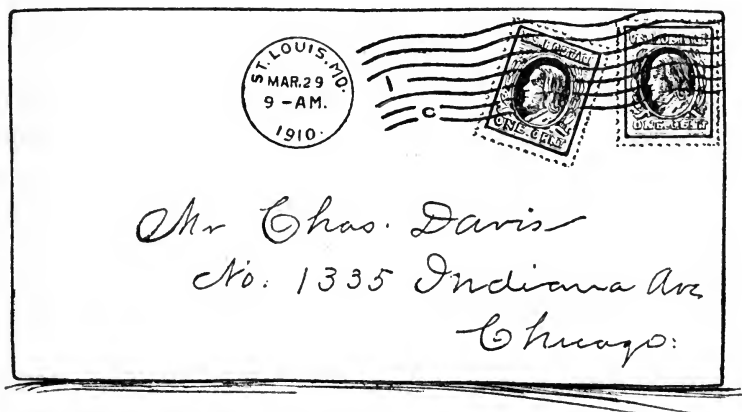 ST. LOUIS, MO.
MAR. 29
9 - AM.
1910.
1
C
U.S. POSTAGE
ONE. CENT
U.S. POSTAGE
ONE. CENT
Mr Chas. Davis
No. 1335 Indiana Ave
Chicago.